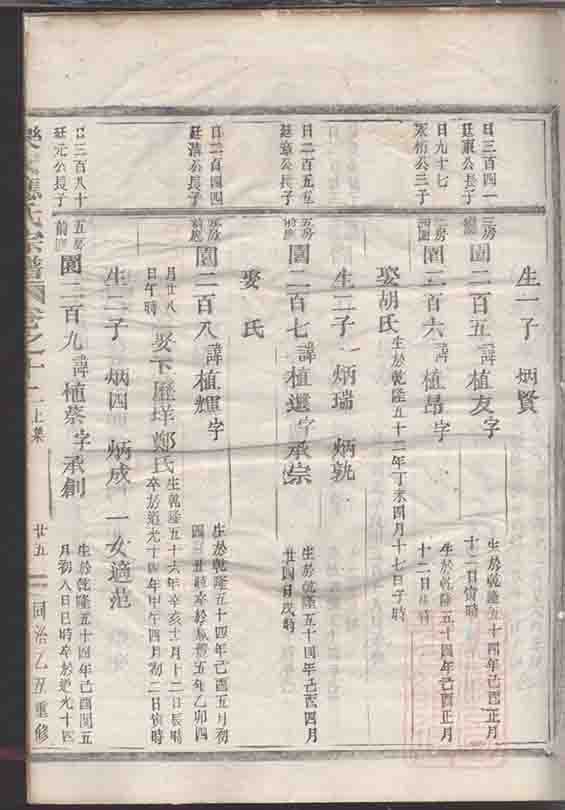 生一子 炳賢
日三百四一
廷東公長子
三房
園二百五 諱植友 字
生於乾隆五十四年己酉正月
十二日寅時
日九十七
三子
園二百六 諱植昂 字
生於乾隆五十四年己酉正月
十二日 時
娶胡氏 生於乾隆五十二年丁未四月十七日子時
生二子 炳瑞 炳孰
日二百五五
廷章公長子
五房
園二百七 諱植選 字承宗
生於乾隆五十四年己酉四月
廿四日戌時
娶 氏
日二百四四
廷滿公長子
五房
前
園二百八 諱植輝 字
生於乾隆五十四年己酉五月初
四 卒於 五年乙卯四
月廿八
日午時
娶下歷垟鄭氏
生乾隆五十六年辛亥十月十二日辰時
卒於道光十四年甲午四月初二日寅時
生二子 炳四 炳成 一女適范
日三百八十
廷元公長子
五房
前
園二百九 諱植蔡 字承創
生於乾隆五十四年己酉閏五
月初八日巳時卒於道光十四
應氏宗譜 卷之十一 上集 廿五 同治乙丑重修